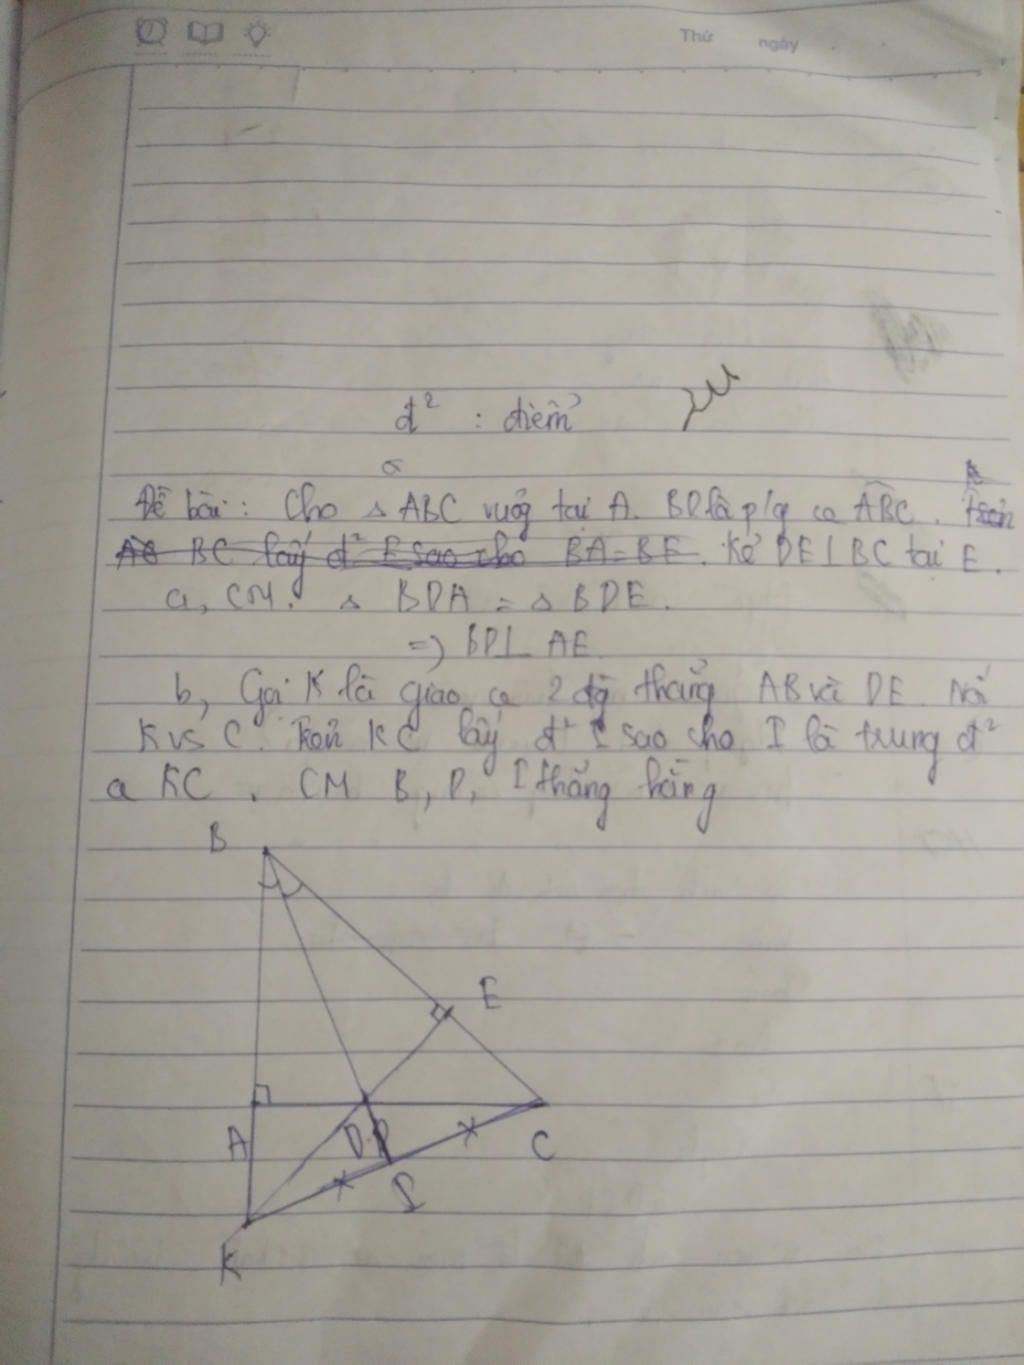 Thứ ngày
đ² : điểm
Đề bài: Cho △ ABC vuông tại A. BD là p/g ca ABC.
BC lấy đ² E sao cho BA=BE. Kẻ DE⊥BC tại E.
a, CM. △ BDA = △ BDE.
=) BD⊥ AE
b, Gọi K là giao ca 2 đg thẳng AB và DE. Nối
K vs C. Trên KC lấy đ² I sao cho I là trung đ²
KC. CM B, D, I thẳng hàng
B
E
A D C
I
K